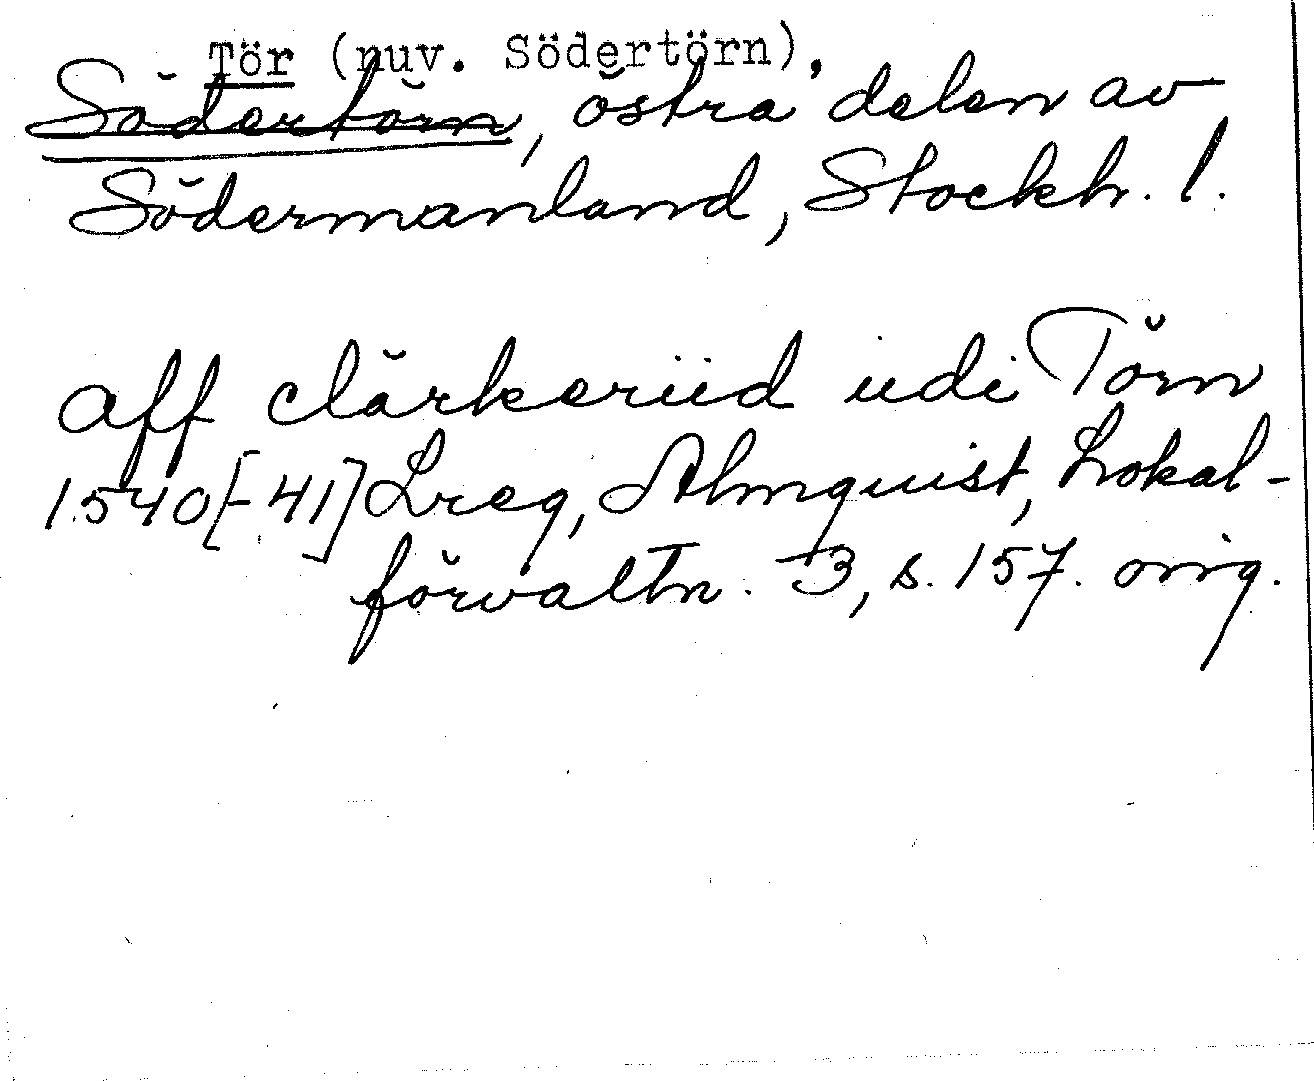 Tör (nuv. Södertörn),
Södertörn, östra delen av
Södermanland, Stockh. l.
aff clärkeriid udi Törn
1540[-41] Lreg, Almquist, Lokal-
förvaltn. 3, s. 157. orig.